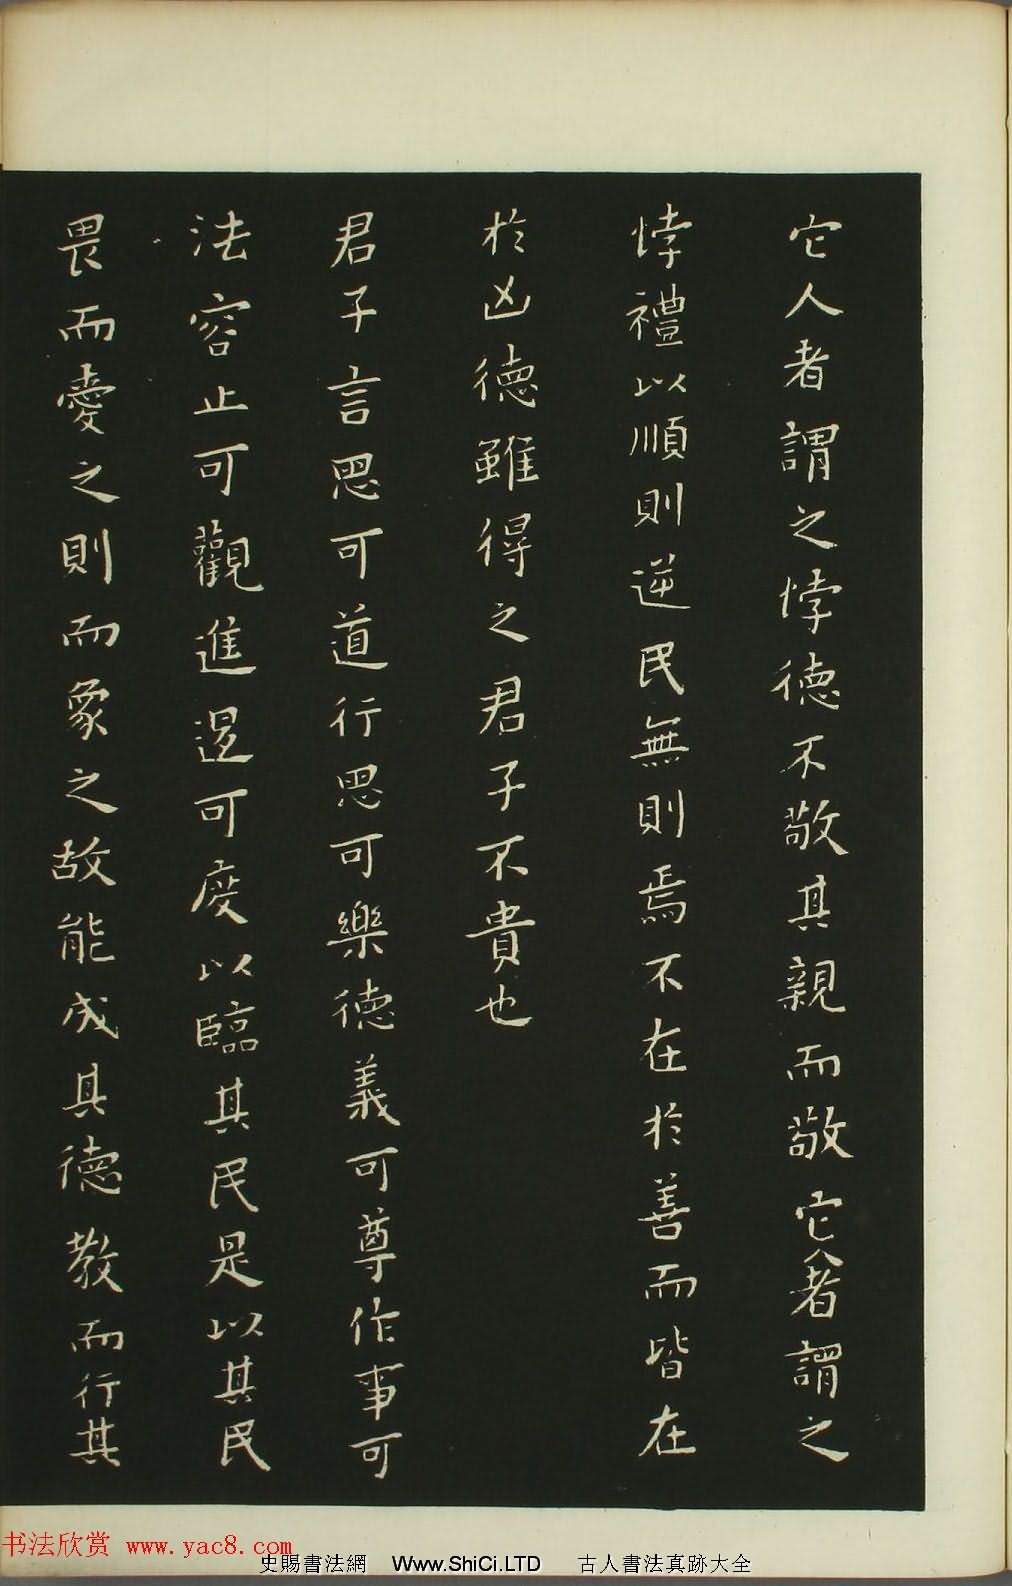 它人者謂之悖德不敬其親而敬它人者謂之
悖禮以順則逆民無則焉不在於善而皆在
於凶德雖得之君子不貴也
君子言思可道行思可樂德義可尊作事可
法容止可觀進退可度以臨其民是以其民
畏而愛之則而象之故能成其德教而行其
书法欣赏 www.yac8.com
史賜書法網 Www.ShiCi.LTD 古人書法真跡大全